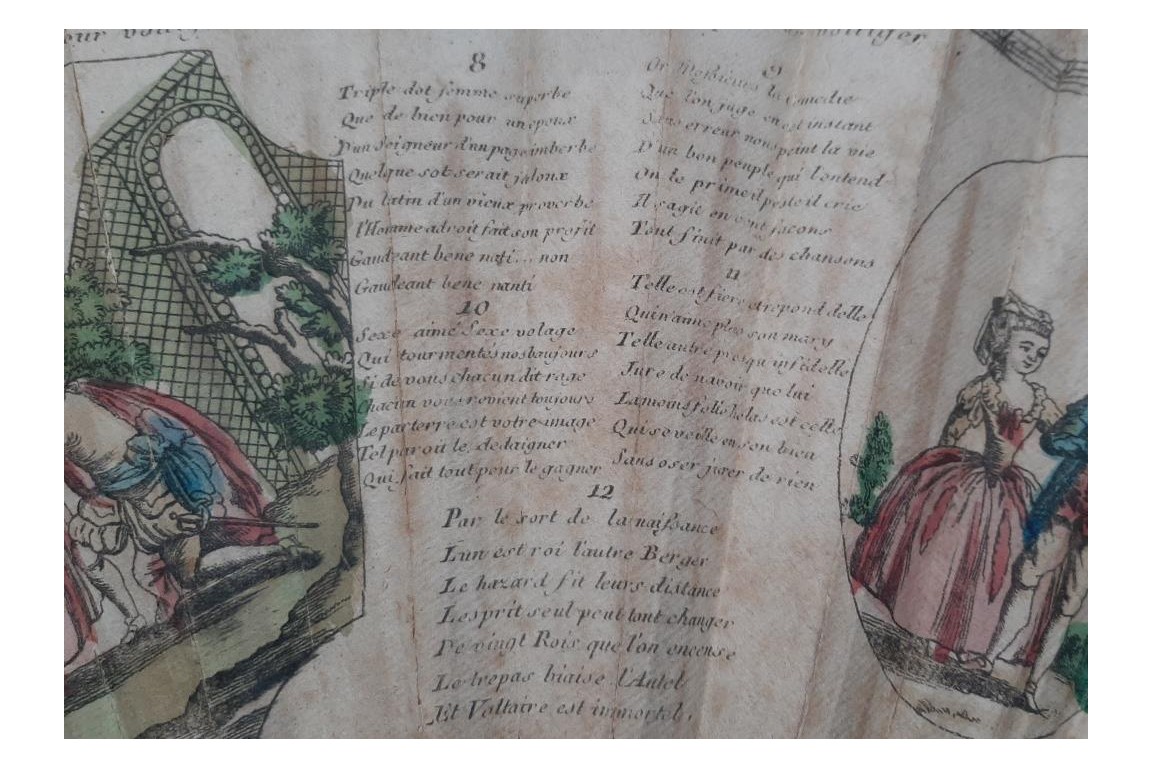 8
Triple dot femme superbe
Que de bien pour un epoux
D'un seigneur d'un page imberbe
Quelque sot serait jaloux
Du latin d'un vieux proverbe
l'Homme adroit fait son profit
Gaudeant bene nati... non
Gaudeant bene nanti
10
Sexe aimé Sexe volage
Qui tourmentés nos beaujours
Si de vous chacun dit rage
Chacun vous revient toujours
Le parterre est votre image
Tel paroit le dedaigner
Qui fait tout pour le gagner
Or Messieurs la comedie
Que l'on juge en cet instant
Sans erreur nous peint la vie
D'un bon peuple qui l'entend
On le prime il peste il crie
Il s'agit en cent facons
Tout finit par des chansons
11
Telle est fiere et repond d'elle
Qui n'aime plus son mary
Telle autre presqu infidelle
Jure de n'avoir que lui
La moins folle helas est celle
Qui se veille en son lien
Sans oser jurer de rien
12
Par le sort de la naissance
L'un est roi l'autre Berger
Le hazard fit leurs distance
L'esprit seul peut tout changer
De vingt Rois que l'on encense
Le trepas biaise l'Autel
Et Voltaire est immortel.